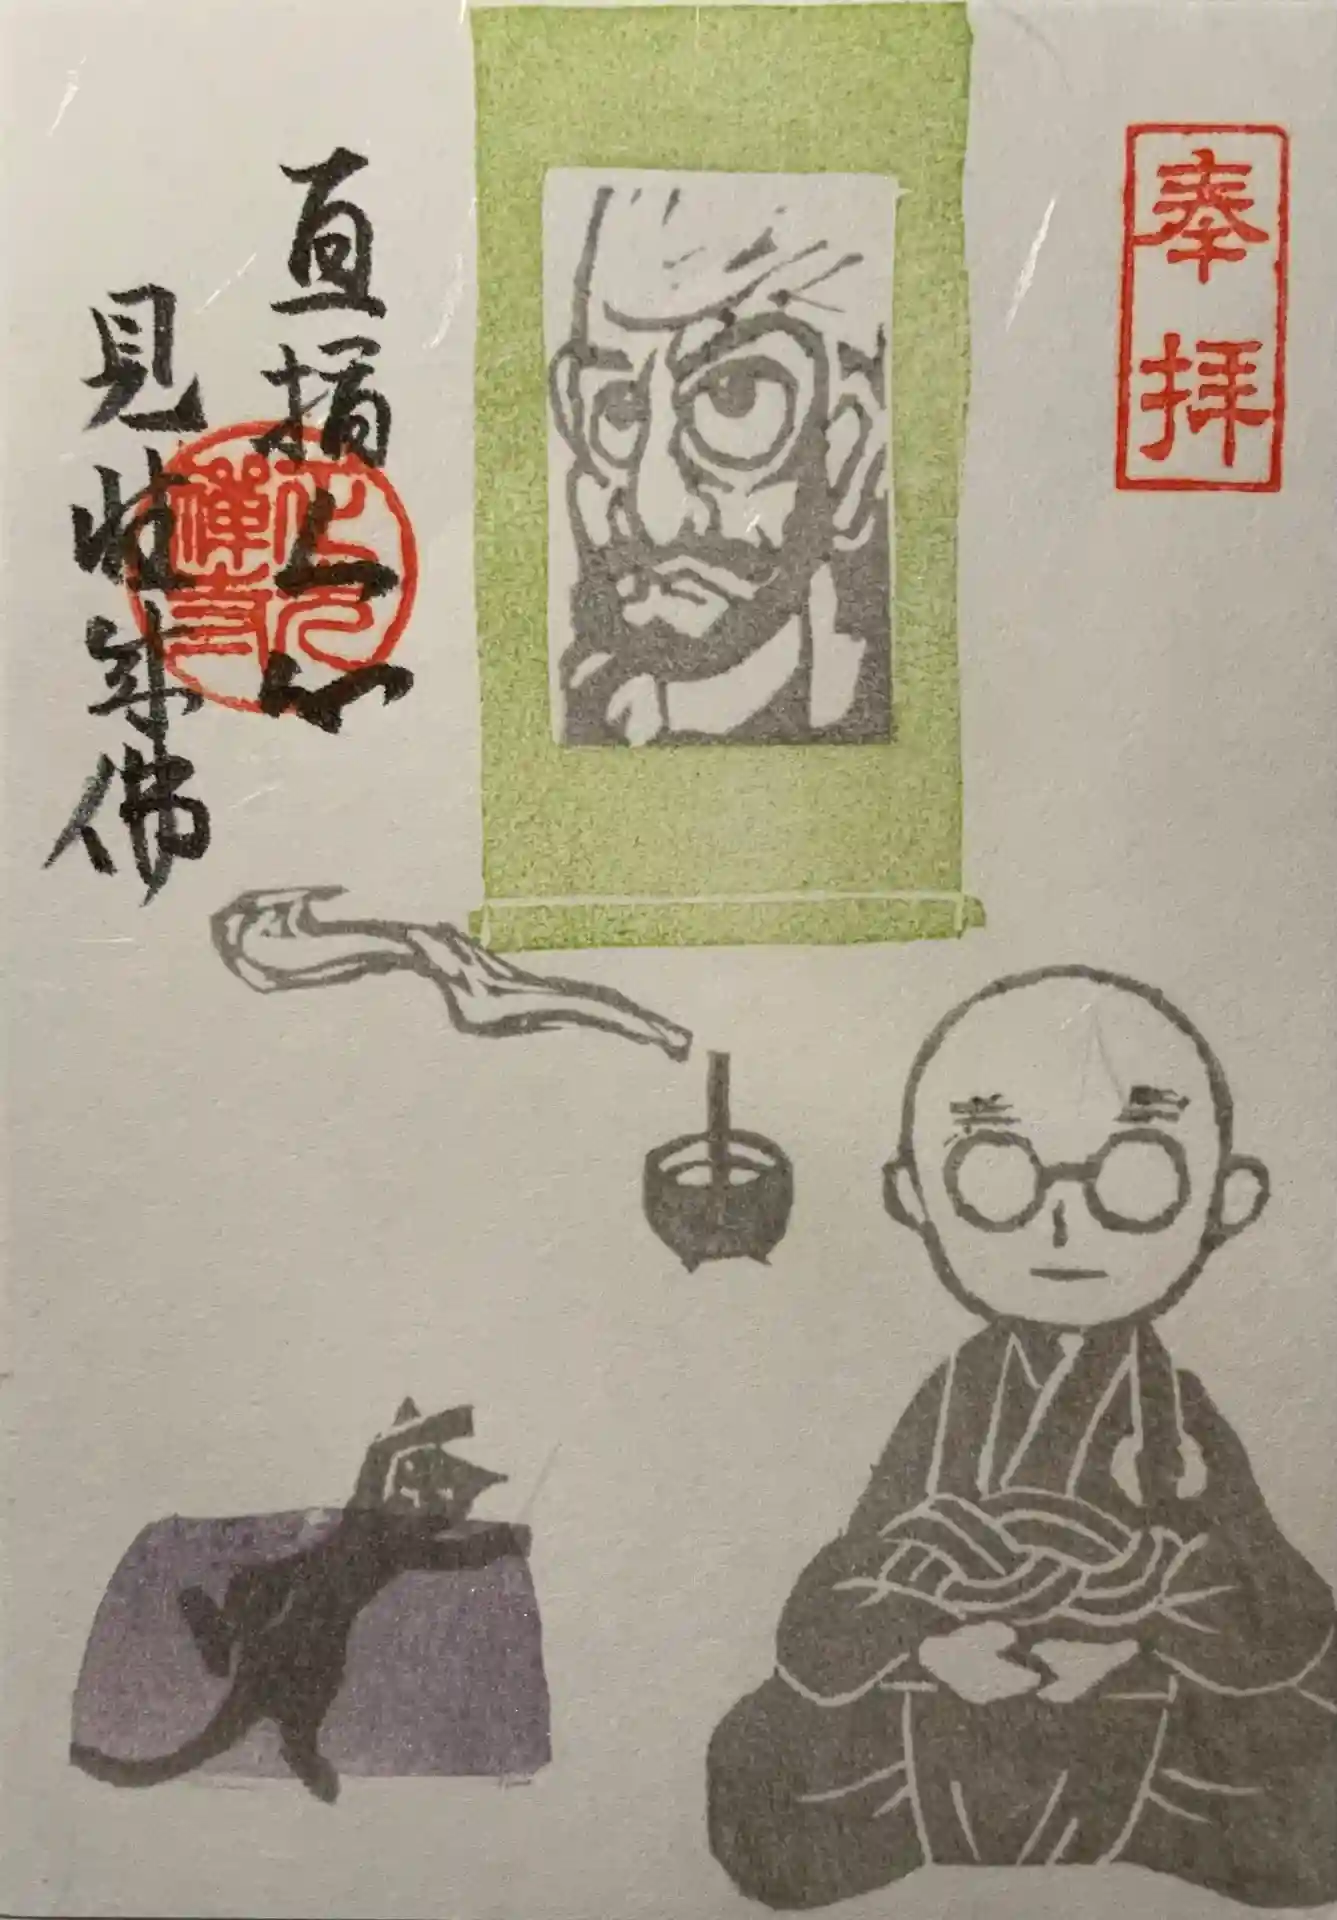 奉拝
直指人心
見性成佛